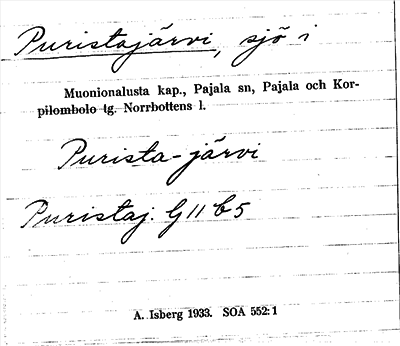 Puristajärvi, sjö i
Muonionalusta kap., Pajala sn, Pajala och Kor-
pilombolo tg. Norrbottens l.
Purista-järvi
Puristaj. G 11 b 5
A. Isberg 1933. SOÄ 552:1